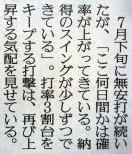 ７月下旬に無安打が続い
たが、「ここ何日間かは確
率が上がってきている。納
得のスイングが少しずつで
きている」。打率３割台を
キープする打撃は、再び上
昇する気配を見せている。